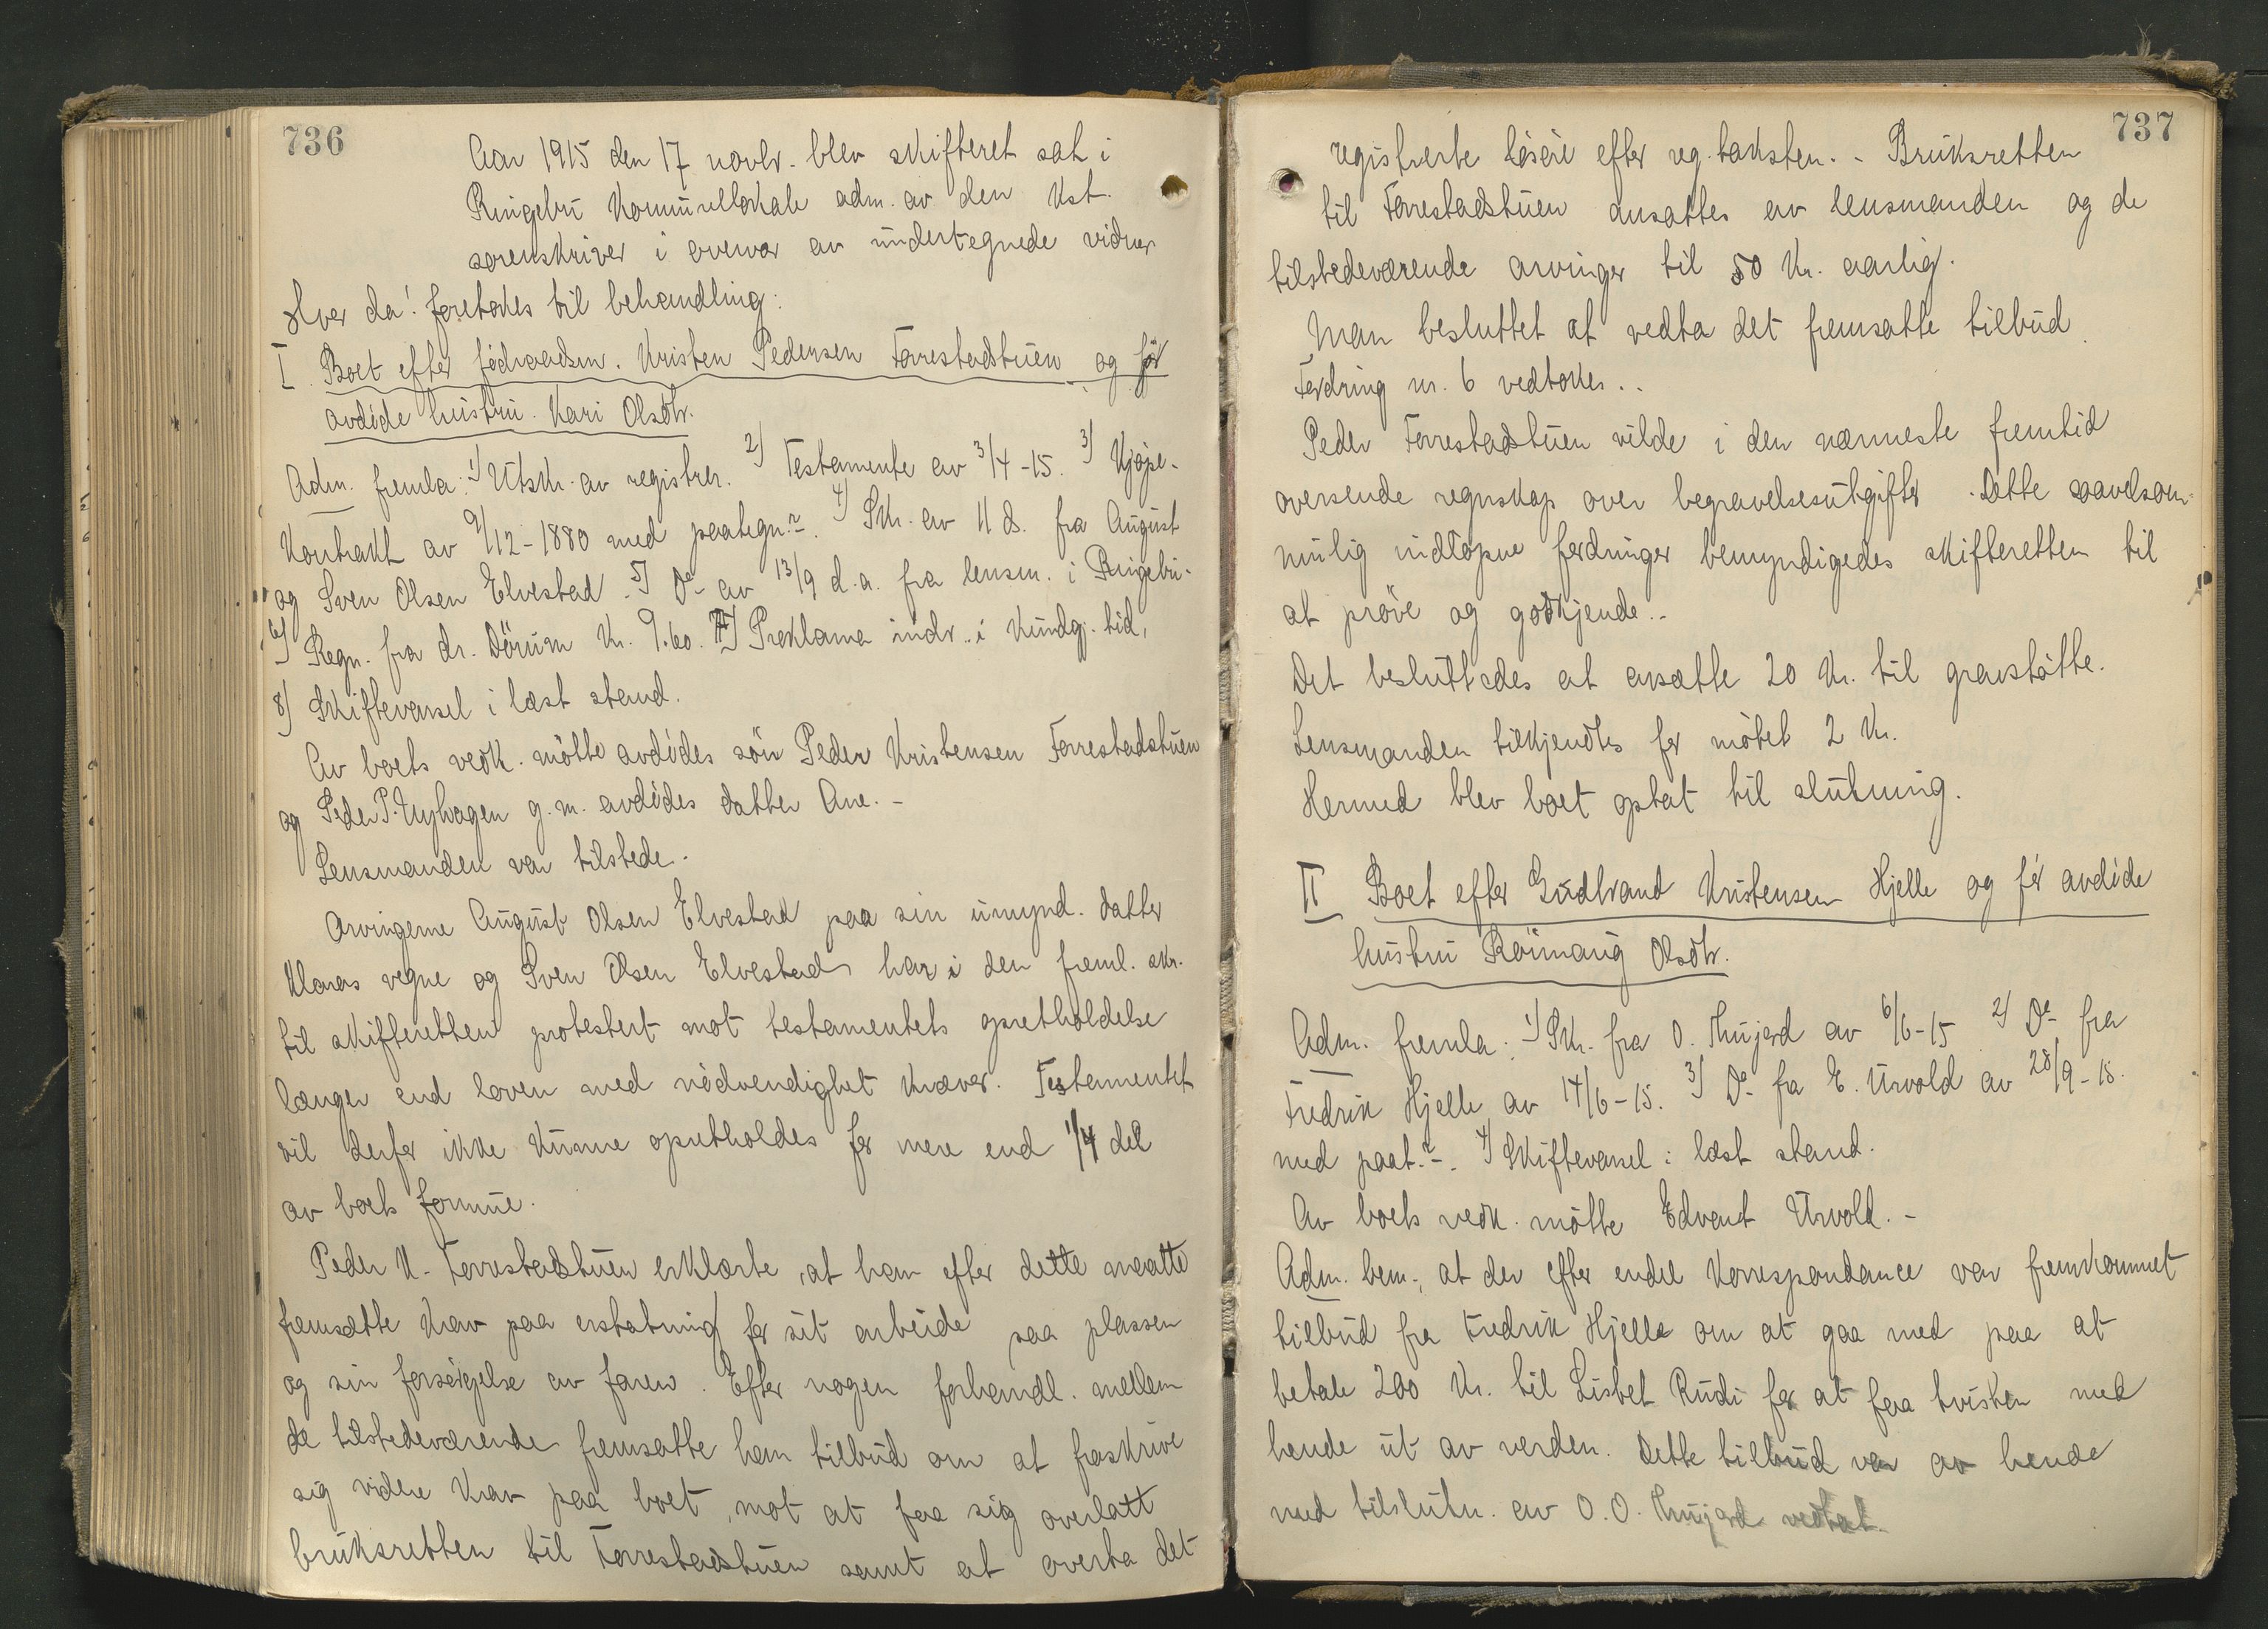 736
Aar 1915 den 17 novbr. blev skifteret sat i
Ringebu kommunelokale adm. av den kst.
sorenskriver i overvær av undertegnede vidner
Hver da! foretokes til behandling:
I. Boet efter føderaadsm. Kristen Pedersen Forrestadstuen og før
avdøde hustru Kari Olsdtr.
Adm. fremla: 1) Utskr. av registrer. 2) Testamente av 3/4-15. 3) Kjøpe-
kontrakt av 9/12-1880 med paategn. 4) Skr. av 11 ds. fra August
og Sven Olsen Elvestad. 5) Do av 13/9 d.a. fra lensm. i Ringebu.
6) Regn. fra dr. Dörum kr. 9.60. 7) Proklama indr. i kundgj. tid.
8) Skiftevarsel i læst stand.
Av boets vedk. møtte avdødes søn Peder Kristensen Forrestadstuen
og Peder P. Nyhagen g.m. avdødes datter Ane. -
Lensmanden var tilstede.
Arvingerne August Olsen Elvestad paa sin umynd. datter
Klaras vegne og Sven Olsen Elvestad har i den freml. skr.
til skifteretten protestert mot testamentets opretholdelse
længer end loven med nødvendighet kræver. Testamentet
vil derfor ikke kunne opretholdes for mere end 1/4 del
av boets formue.
Peder K. Forrestadstuen erklærte, at han efter dette maatte
fremsætte krav paa erstatning for sit arbeide paa plassen
og sin forsørgelse av faren. Efter nogen forhandl. mellem
de tilstedeværende fremsatte han tilbud om at fraskrive
sig videre krav paa boet, mot at faa sig overlatt
bruksretten til Forrestadstuen samt at overta det
737
registrerte løsøre efter reg. taksten. - Bruksretten
til Forrestadstuen ansattes av lensmanden og de
tilstedeværende arvinger til 50 kr. aarlig.
Man besluttet at vedta det fremsatte tilbud.
Fordring nr. 6 vedtokes..
Peder Forrestadstuen vilde i den nærmeste fremtid
oversende regnskap over begravelsesutgifter. Dette saavelsom
mulig indløpne fordringer bemyndigedes skifteretten til
at prøve og godkjende..
Det besluttedes at avsætte 20 kr. til gravstøtte.
Lensmanden tilkjendtes for møtet 2 kr.
Hermed blev boet optat til slutning.
II Boet efter Gudbrand Kristensen Hjelle og før avdøde
hustru Rönnaug Olsdtr.
Adm. fremla: 1) Skr. fra O. Thujord av 6/6-15 2) Do fra
Fredrik Hjelle av 14/6-15. 3) Do fra E. Urvold av 28/9-15.
med paat. 4) Skiftevarsel i læst stand.
Av boets vedk. møtte Edvart Urvold. -
Adm. bem., at der efter endel korrespondance var fremkommet
tilbud fra Fredrik Hjelle om at gaa med paa at
betale 200 kr. til Lisbet Rudi for at faa tvisten med
hende ut av verden. Dette tilbud var av hende
med tilslutn. av O. O. Thujord vedtat.